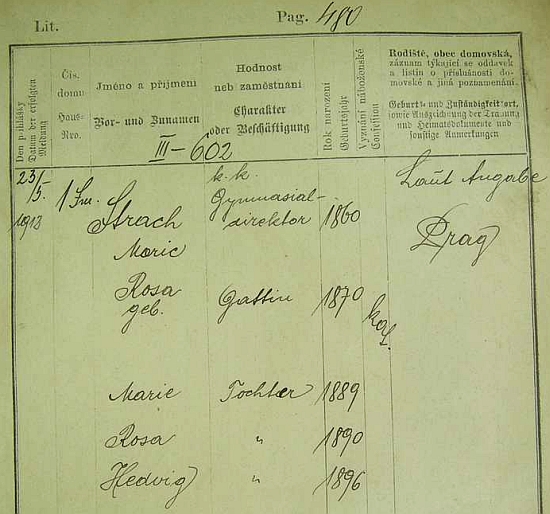 Lit.
Pag. 480
Den přihlášky
Datum der erfolgten
Meldung
Čís.
domu
Haus-
Nro.
Jméno a příjmení
Vor- und Zunamen
III-602
Hodnost
neb zaměstnání
Charakter
oder Beschäftigung
Rok narození
Geburtsjahr
Vyznání náboženské
Confession
Rodiště, obec domovská,
záznam týkající se oddavek
a listin o příslušnosti do-
movské a jiná poznamenání.
Geburts- und Zuständigkeitsort,
sowie Aufzeichnung der Trauung
und Heimatsdokumente und
sonstige Anmerkungen
23/5.
1913
Strach
Moric
k. k.
Gymnasial-
direktor
1860
Laut Angabe
Prag
Rosa
geb.
Gattin
1870
kat.
Marie Tochter 1889
Rosa " 1890
Hedvig " 1896